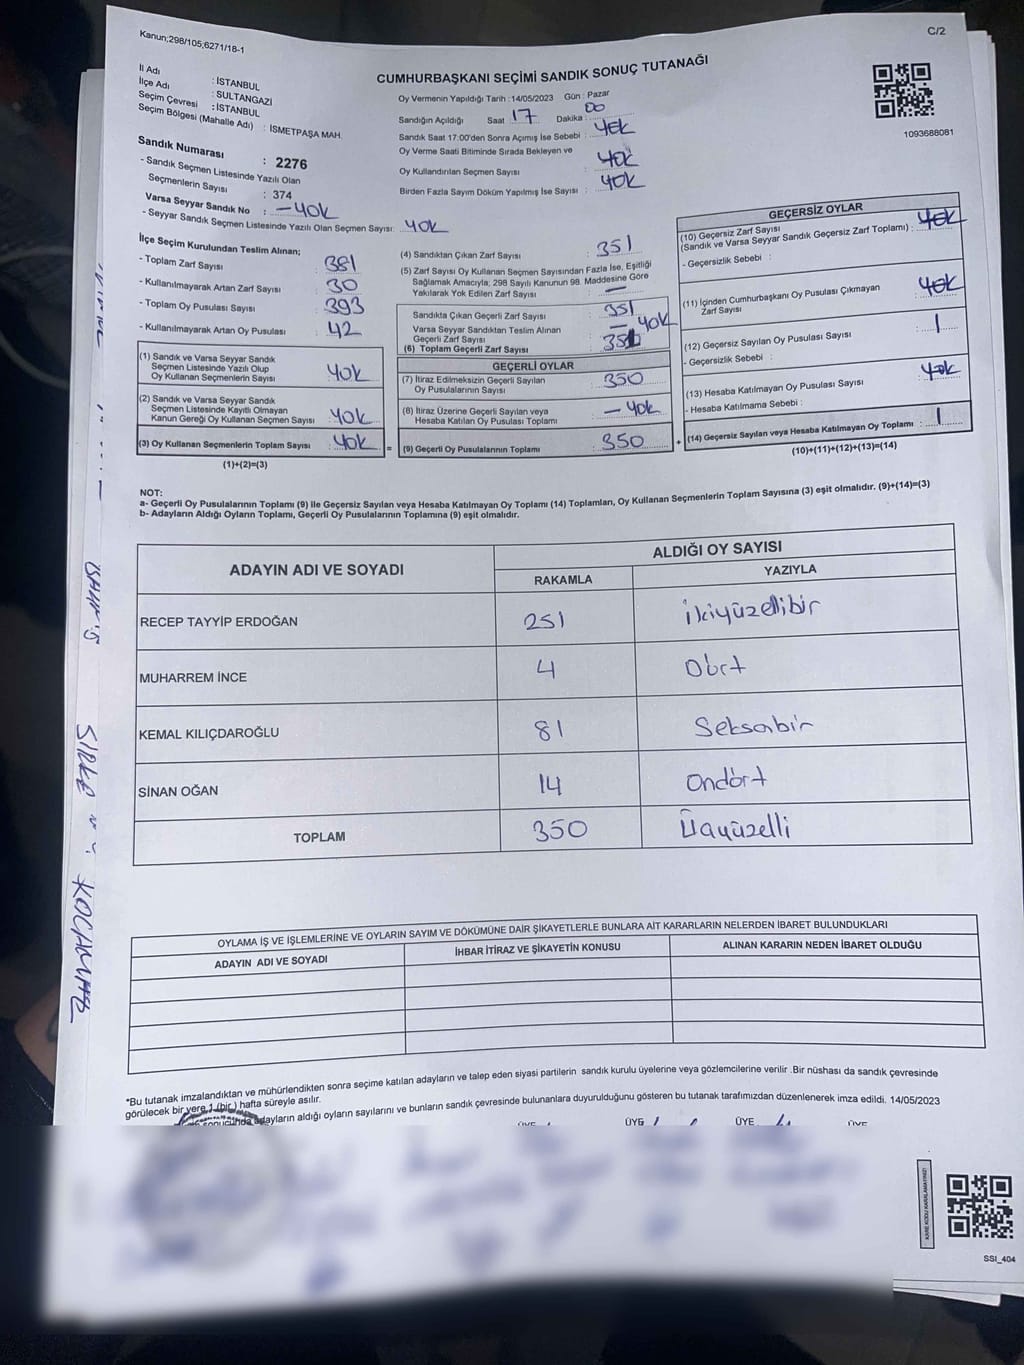 Kanun;298/105,6271/18-1
C/2
CUMHURBAŞKANI SEÇİMİ SANDIK SONUÇ TUTANAĞI
İl Adı : İSTANBUL
İlçe Adı : SULTANGAZİ
Seçim Çevresi : İSTANBUL
Seçim Bölgesi (Mahalle Adı) : İSMETPAŞA MAH.
Sandık Numarası : 2276
- Sandık Seçmen Listesinde Yazılı Olan
Seçmenlerin Sayısı : 374
Varsa Seyyar Sandık No : - YOK
- Seyyar Sandık Seçmen Listesinde Yazılı Olan Seçmen Sayısı: YOK
Oy Vermenin Yapıldığı Tarih :14/05/2023 Gün : Pazar
Sandığın Açıldığı Saat 17 Dakika: 00
Sandık Saat 17:00'den Sonra Açılmış İse Sebebi : YOK
Oy Verme Saati Bitiminde Sırada Bekleyen ve
Oy Kullandırılan Seçmen Sayısı : YOK
Birden Fazla Sayım Döküm Yapılmış İse Sayısı : YOK
1093688081
İlçe Seçim Kurulundan Teslim Alınan;
- Toplam Zarf Sayısı : 381
- Kullanılmayarak Artan Zarf Sayısı : 30
- Toplam Oy Pusulası Sayısı : 393
- Kullanılmayarak Artan Oy Pusulası : 42
(1) Sandık ve Varsa Seyyar Sandık
Seçmen Listesinde Yazılı Olup
Oy Kullanan Seçmenlerin Sayısı : YOK
(2) Sandık ve Varsa Seyyar Sandık
Seçmen Listesinde Kayıtlı Olmayan
Kanun Gereği Oy Kullanan Seçmen Sayısı : YOK
(3) Oy Kullanan Seçmenlerin Toplam Sayısı : YOK
(1)+(2)=(3)
(4) Sandıktan Çıkan Zarf Sayısı : 351
(5) Zarf Sayısı Oy Kullanan Seçmen Sayısından Fazla İse, Eşitliği
Sağlamak Amacıyla; 298 Sayılı Kanunun 98. Maddesine Göre
Yakılarak Yok Edilen Zarf Sayısı : —
Sandıkta Çıkan Geçerli Zarf Sayısı : 351
Varsa Seyyar Sandıktan Teslim Alınan
Geçerli Zarf Sayısı : — YOK
(6) Toplam Geçerli Zarf Sayısı : 351
GEÇERLİ OYLAR
(7) İtiraz Edilmeksizin Geçerli Sayılan
Oy Pusulalarının Sayısı : 350
(8) İtiraz Üzerine Geçerli Sayılan veya
Hesaba Katılan Oy Pusulası Toplamı : — YOK
= (9) Geçerli Oy Pusulalarının Toplamı : 350
GEÇERSİZ OYLAR
(10) Geçersiz Zarf Sayısı
(Sandık ve Varsa Seyyar Sandık Geçersiz Zarf Toplamı) : YOK
- Geçersizlik Sebebi :
(11) İçinden Cumhurbaşkanı Oy Pusulası Çıkmayan
Zarf Sayısı : YOK
(12) Geçersiz Sayılan Oy Pusulası Sayısı : 1
- Geçersizlik Sebebi :
(13) Hesaba Katılmayan Oy Pusulası Sayısı : YOK
- Hesaba Katılmama Sebebi :
+ (14) Geçersiz Sayılan veya Hesaba Katılmayan Oy Toplamı : 1
(10)+(11)+(12)+(13)=(14)
NOT:
a- Geçerli Oy Pusulalarının Toplamı (9) ile Geçersiz Sayılan veya Hesaba Katılmayan Oy Toplamı (14) Toplamları, Oy Kullanan Seçmenlerin Toplam Sayısına (3) eşit olmalıdır. (9)+(14)=(3)
b- Adayların Aldığı Oyların Toplamı, Geçerli Oy Pusulalarının Toplamına (9) eşit olmalıdır.
ADAYIN ADI VE SOYADI
ALDIĞI OY SAYISI
RAKAMLA YAZIYLA
RECEP TAYYİP ERDOĞAN 251 İkiyüzellibir
MUHARREM İNCE 4 Dört
KEMAL KILIÇDAROĞLU 81 Seksabir
SİNAN OĞAN 14 Ondört
TOPLAM 350 Üçyüzelli
OYLAMA İŞ VE İŞLEMLERİNE VE OYLARIN SAYIM VE DÖKÜMÜNE DAİR ŞİKAYETLERLE BUNLARA AİT KARARLARIN NELERDEN İBARET BULUNDUKLARI
ADAYIN ADI VE SOYADI İHBAR İTİRAZ VE ŞİKAYETİN KONUSU ALINAN KARARIN NEDEN İBARET OLDUĞU
*Bu tutanak imzalandıktan ve mühürlendikten sonra seçime katılan adayların ve talep eden siyasi partilerin sandık kurulu üyelerine veya gözlemcilerine verilir .Bir nüshası da sandık çevresinde
görülecek bir yere 1 (bir ) hafta süreyle asılır.
sonucunda adayların aldığı oyların sayılarını ve bunların sandık çevresinde bulunanlara duyurulduğunu gösteren bu tutanak tarafımızdan düzenlenerek imza edildi. 14/05/2023
ÜYE ÜYE ÜYE ÜYE
SSI_404